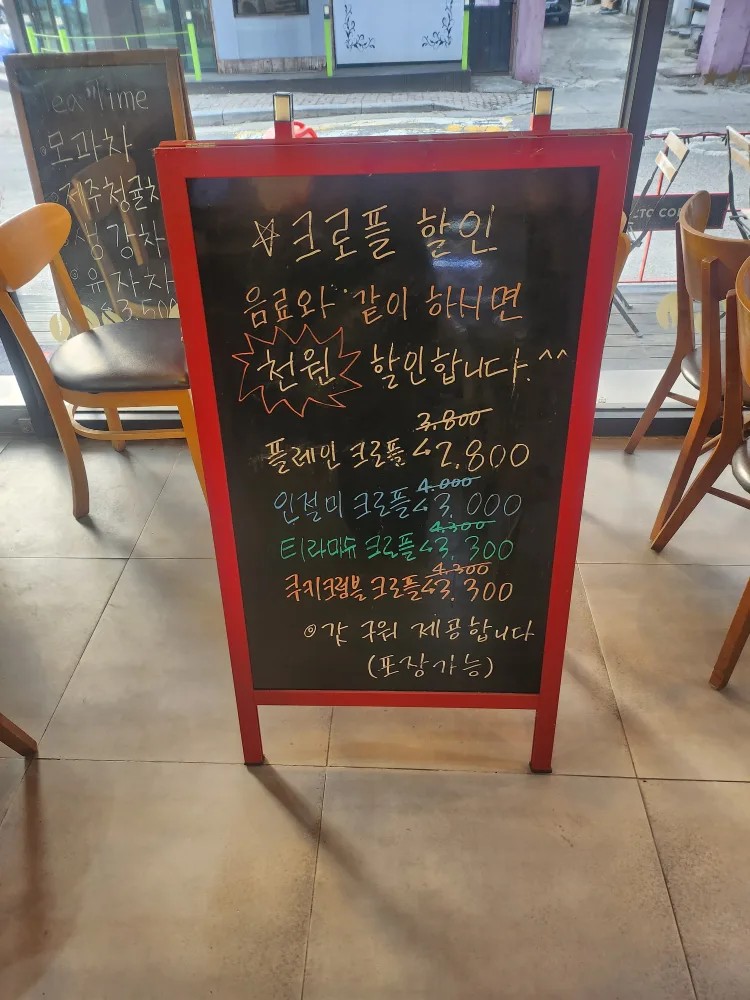 Tea Time
모과차
제주청귤차
생강차
유자차
3,500
☆크로플 할인
음료와 같이 하시면
천원 할인합니다.^^
3.800
플레인 크로플 2.800
4.000
인절미 크로플 3.000
4.300
티라미슈 크로플 3.300
4.300
쿠키크럼블 크로플 3.300
◎갓 구워 제공합니다
(포장가능)